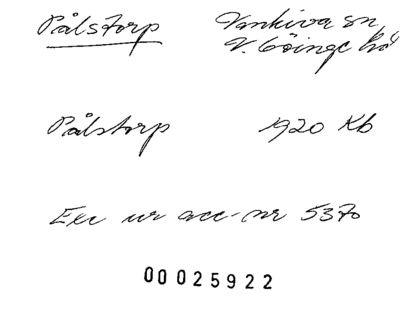 Pålstorp Vankiva sn
V. Göinge hd
Pålstorp 1920 Kb
Exc ur acc-nr 5370
00 025922